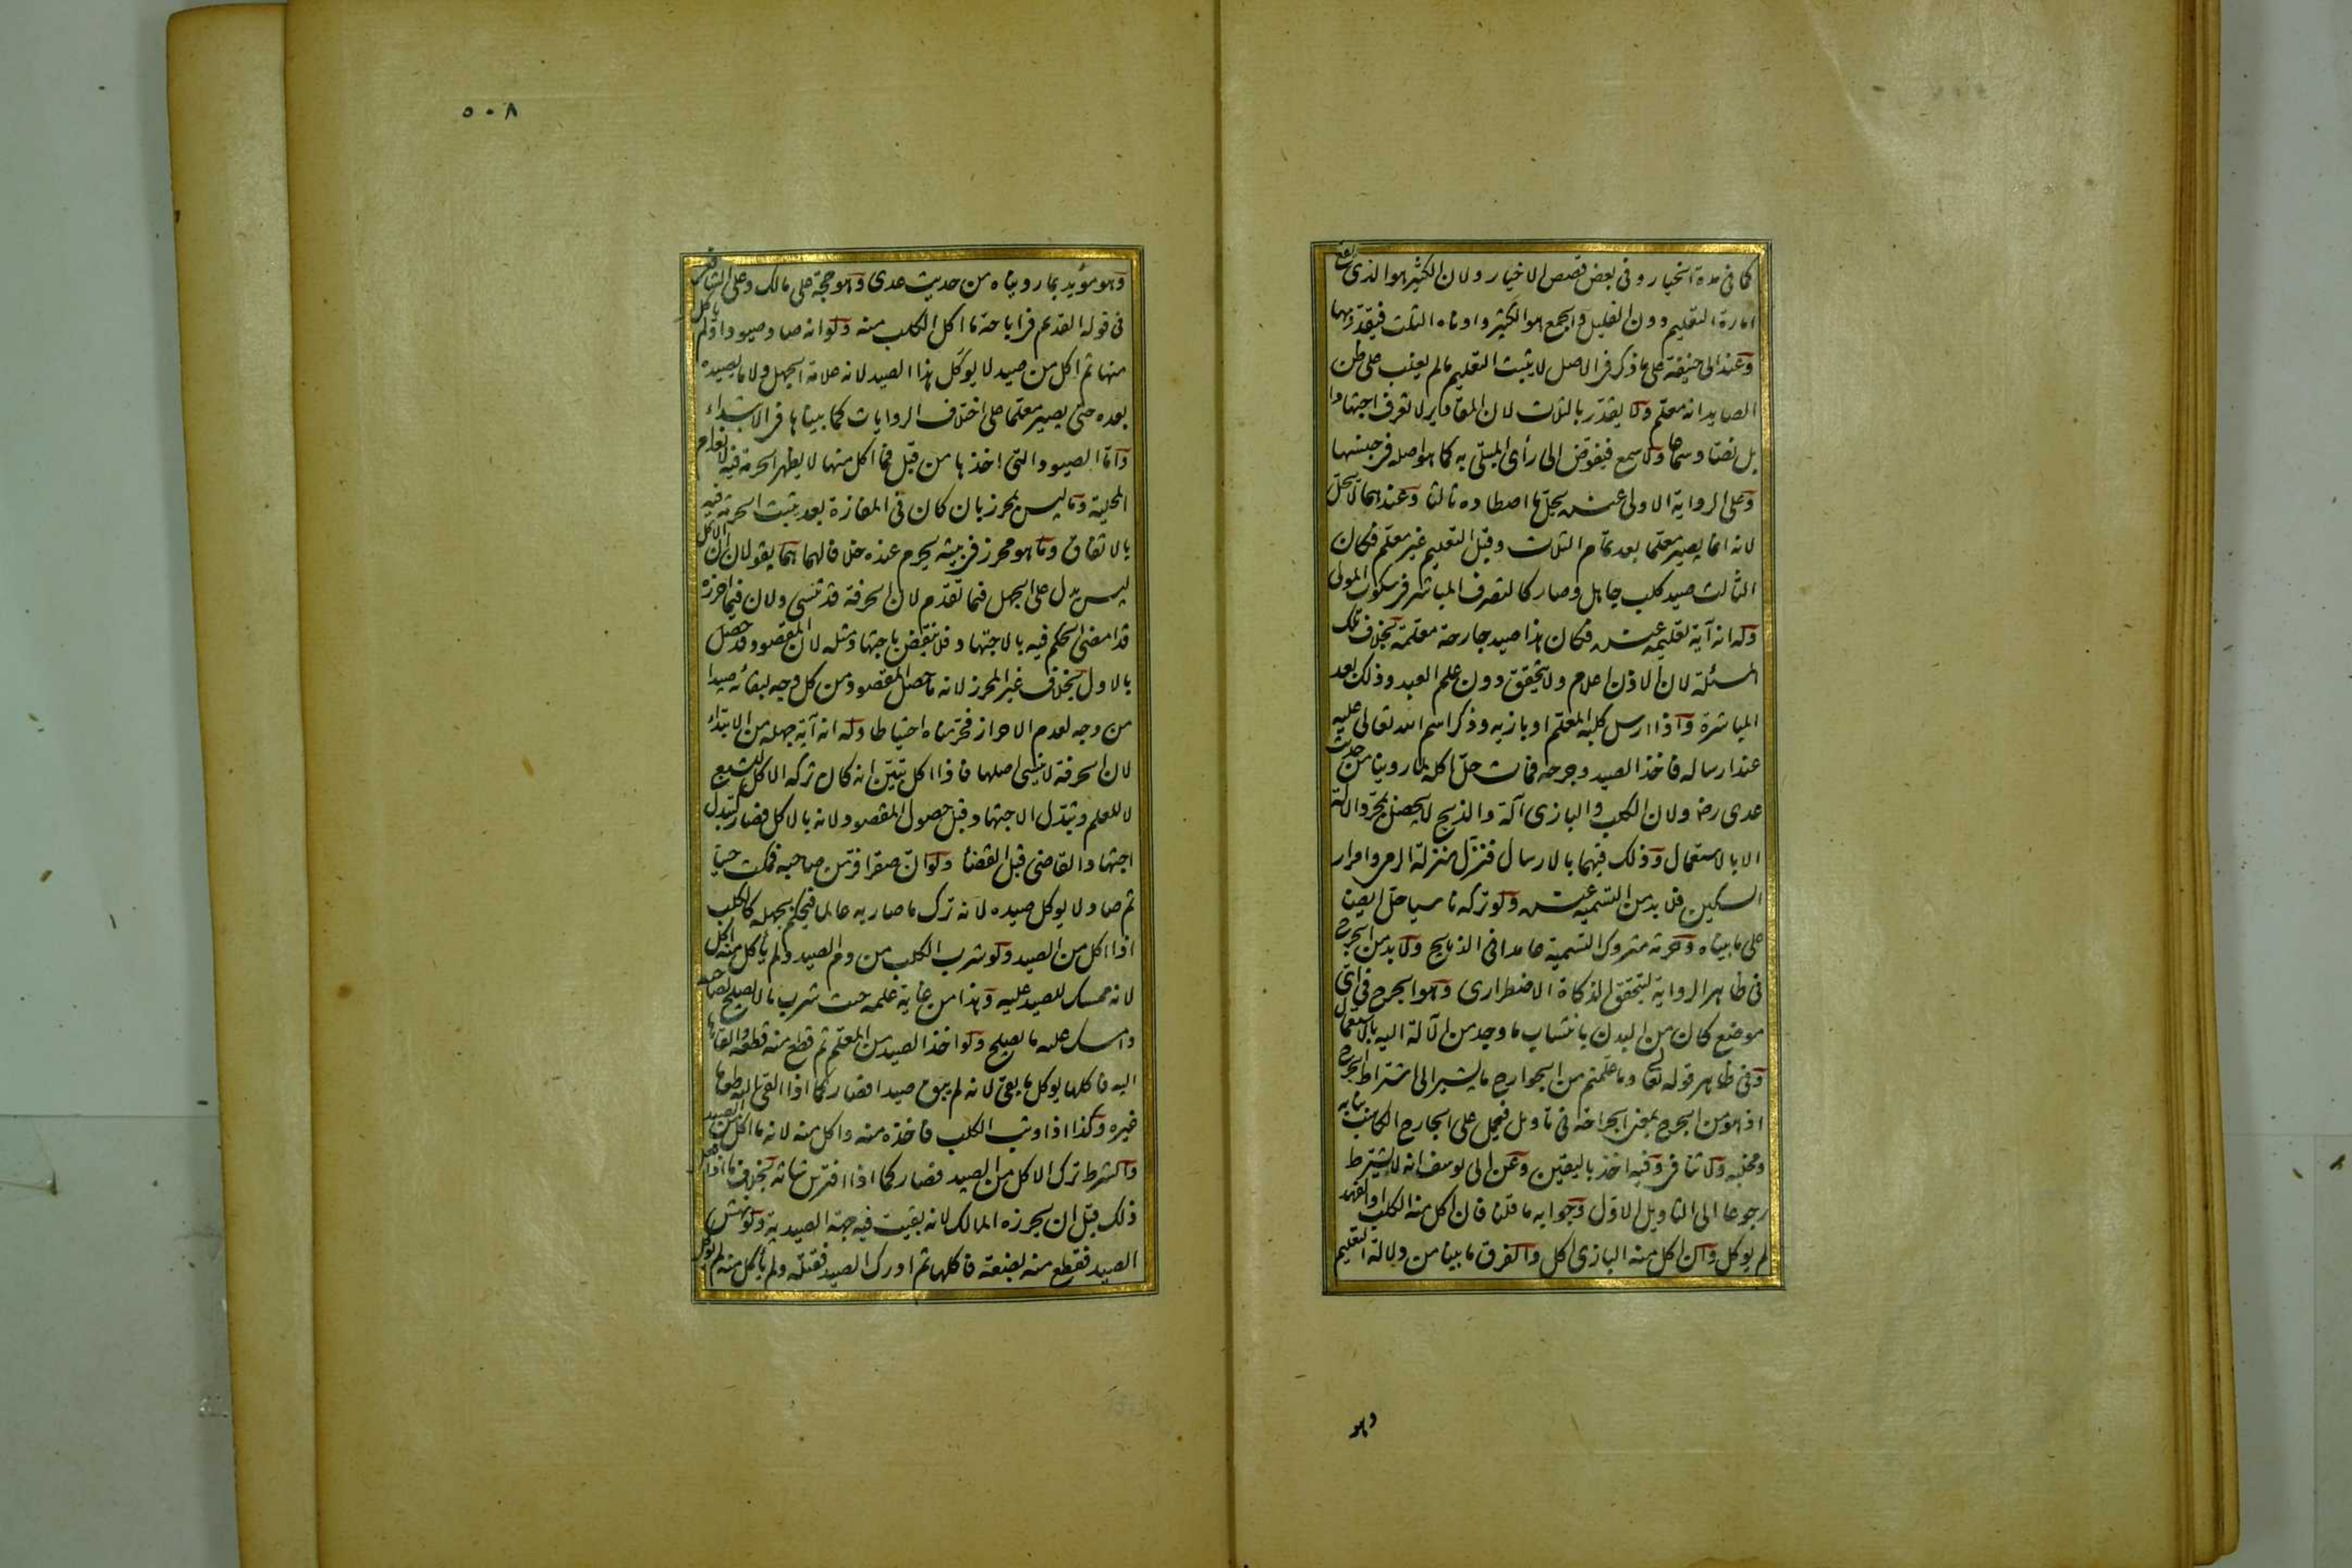 كما فى مدة الخيار وفى بعض قصص الاخيار ولان الكثير هو الذى يقع
امارة التعليم دون القليل والجمع هو الكثير وادناه الثلث فيقدر بهما
وعند ابى حنيفة على ما ذكر فى الاصل لا يثبت التعليم مالم يغلب على ظن
الصايد انه معلم ولا يقدر بالثلاث لان المقادير لا تعرف اجتهادا
بل نصّا وسماعا ولا سمع فيفوّض الى رأى المبتلى به كما هو اصله فى جنسها
وعلى الرواية الاولى عنده يحل ما اصطاده ثالثا وعندهما لا يحل
لانه انما يصير معلما بعد تمام الثلاث وقبل التعليم غير معلم فكان
الثالث صيد كلب جاهل وصار كالتصرف المباشر فى سكوت المولى
وله انه آية تعليمه عنده فكان هذا صيد جارحة معلمة بخلاف تلك
المسئلة لان الاذن اعلام ولا يتحقق دون علم العبد وذلك بعد
المباشرة واذا ارسل كلبه المعلم او بازيه وذكر اسم الله تعالى عليه
عند ارساله فاخذ الصيد وجرحه فمات حل اكله لما روينا من حديث
عدى رضـ ولان الكلب والبازى آلة والذبح لا يحصل بمجرد الآلة
الا بالاستعمال وذلك فيهما بالارسال فنزل منزلة الرمى وامرار
السكين فلا بد من التسمية عنده ولو تركه ناسيا حل ايضا
على ما بيناه وحرمة متروك التسمية عامدا فى الذبايح ولا بد من الجرح
فى ظاهر الرواية ليتحقق الذكاة الاضطرارى وهو الجرح فى اى
موضع كان من البدن بانتساب ما وجد من الآلة اليه بالاستعمال
وفى ظاهر قوله تعالى وما علمتم من الجوارح ما يشير الى اشتراط الجرح
اذ هو من الجرح بمعنى الجراحة فى تاويل فيحمل على الجارح الكاسب بنابه
ومخلبه ولا تنافى وفيه اخذ باليقين وعن ابى يوسف انه لا يشترط
رجوعا الى التاويل الاول وجوابه ما قلنا فان اكل منه الكلب او الفهد
لم يوكل وان اكل منه البازى اكل والفرق ما بينا من دلالة التعليم
وهو
٥٠٨
وهو مؤيد بما رويناه من حديث عدى وهو حجة على مالك وعلى الشافعى
فى قوله القديم فى اباحة ما اكل الكلب منه ولو انه صاد صيودا ولم ياكل
منها ثم اكل من صيد لا يوكل هذا الصيد لانه علامة الجهل ولا ما يصيده
بعده حتى يصير معلما على اختلاف الروايات كما بيناها فى الابتداء
واما الصيود التى اخذها من قبل فما اكل منها لا يظهر الحرمة فيه لانعدام
المحلية وما ليس بمحرز بان كان فى المفازة بعد يثبت الحرمة فيه
بالاتفاق وما هو محرز فى بيته يحرم عنده خلافا لهما هما يقولان ان الاكل
ليس يدل على الجهل فيما تقدم لان الحرفة قد تنسى ولان فيما احرزه
قد امضى الحكم فيه بالاجتهاد فلا ينقض باجتهاد مثله لان المقصود قد حصل
بالاول بخلاف غير المحرز لانه ما حصل المقصود من كل وجه لبقائه صيدا
من وجه لعدم الاحراز فحرمناه احتياطا وله انه آية جهله من الابتداء
لان الحرفة لا ينسى اصلها فاذا اكل تبين انه كان تركه الاكل للشبع
لا للعلم وتبدل الاجتهاد قبل حصول المقصود لانه بالاكل فصار كتبدل
اجتهاد القاضى قبل القضاء ولو ان صقرا فر من صاحبه فمكث حينا
ثم صاد لا يوكل صيده لانه ترك ما صار به عالما فيحكم بجهله كالكلب
اذا اكل من الصيد ولو شرب الكلب من دم الصيد ولم يأكل منه اكل
لانه ممسك للصيد عليه وهذا من غاية علمه حيث شرب ما لا يصلح لصاحبه
وامسك عليه ما يصلح ولو اخذ الصيد من المعلم ثم قطع منه قطعة والقاها
اليه فاكلها يوكل ما بقى لانه لم يبق صيدا فصار كما اذا القى اليه طعاما
غيره وكذا اذا وثب الكلب فاخذه منه واكل منه لانه ما اكل من الصيد
والشرط ترك الاكل من الصيد فصار كما اذا افترس شاته بخلاف ما اذا فعل
ذلك قبل ان يحرزه المالك لانه بقيت فيه جهة الصيدية ولو نهش
الصيد فقطع منه بضعة فاكلها ثم ادرك الصيد فقتله ولم يأكل منه لم يوكل